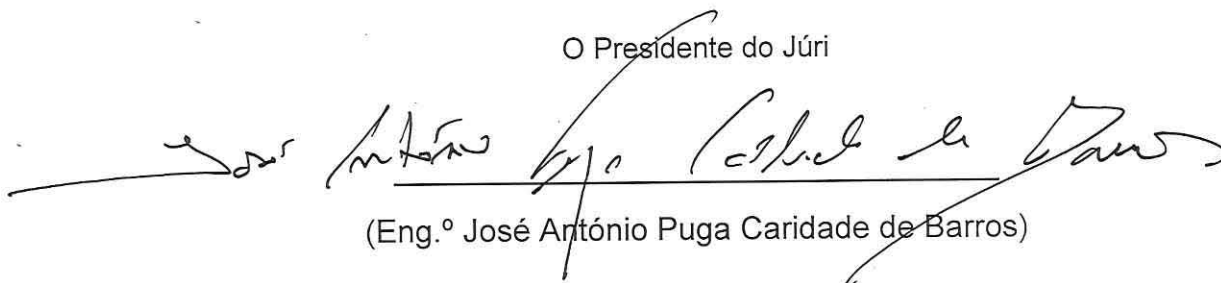 O Presidente do Júri
José António Puga Caridade de Barros
(Eng.º José António Puga Caridade de Barros)